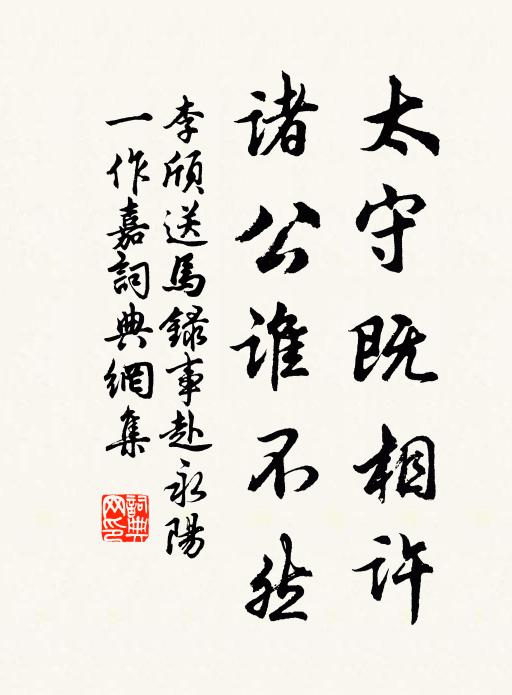 太守既相许
诸公谁不然
李颀送馬録事赴永陽
一作嘉詞典網集
詞典
网印